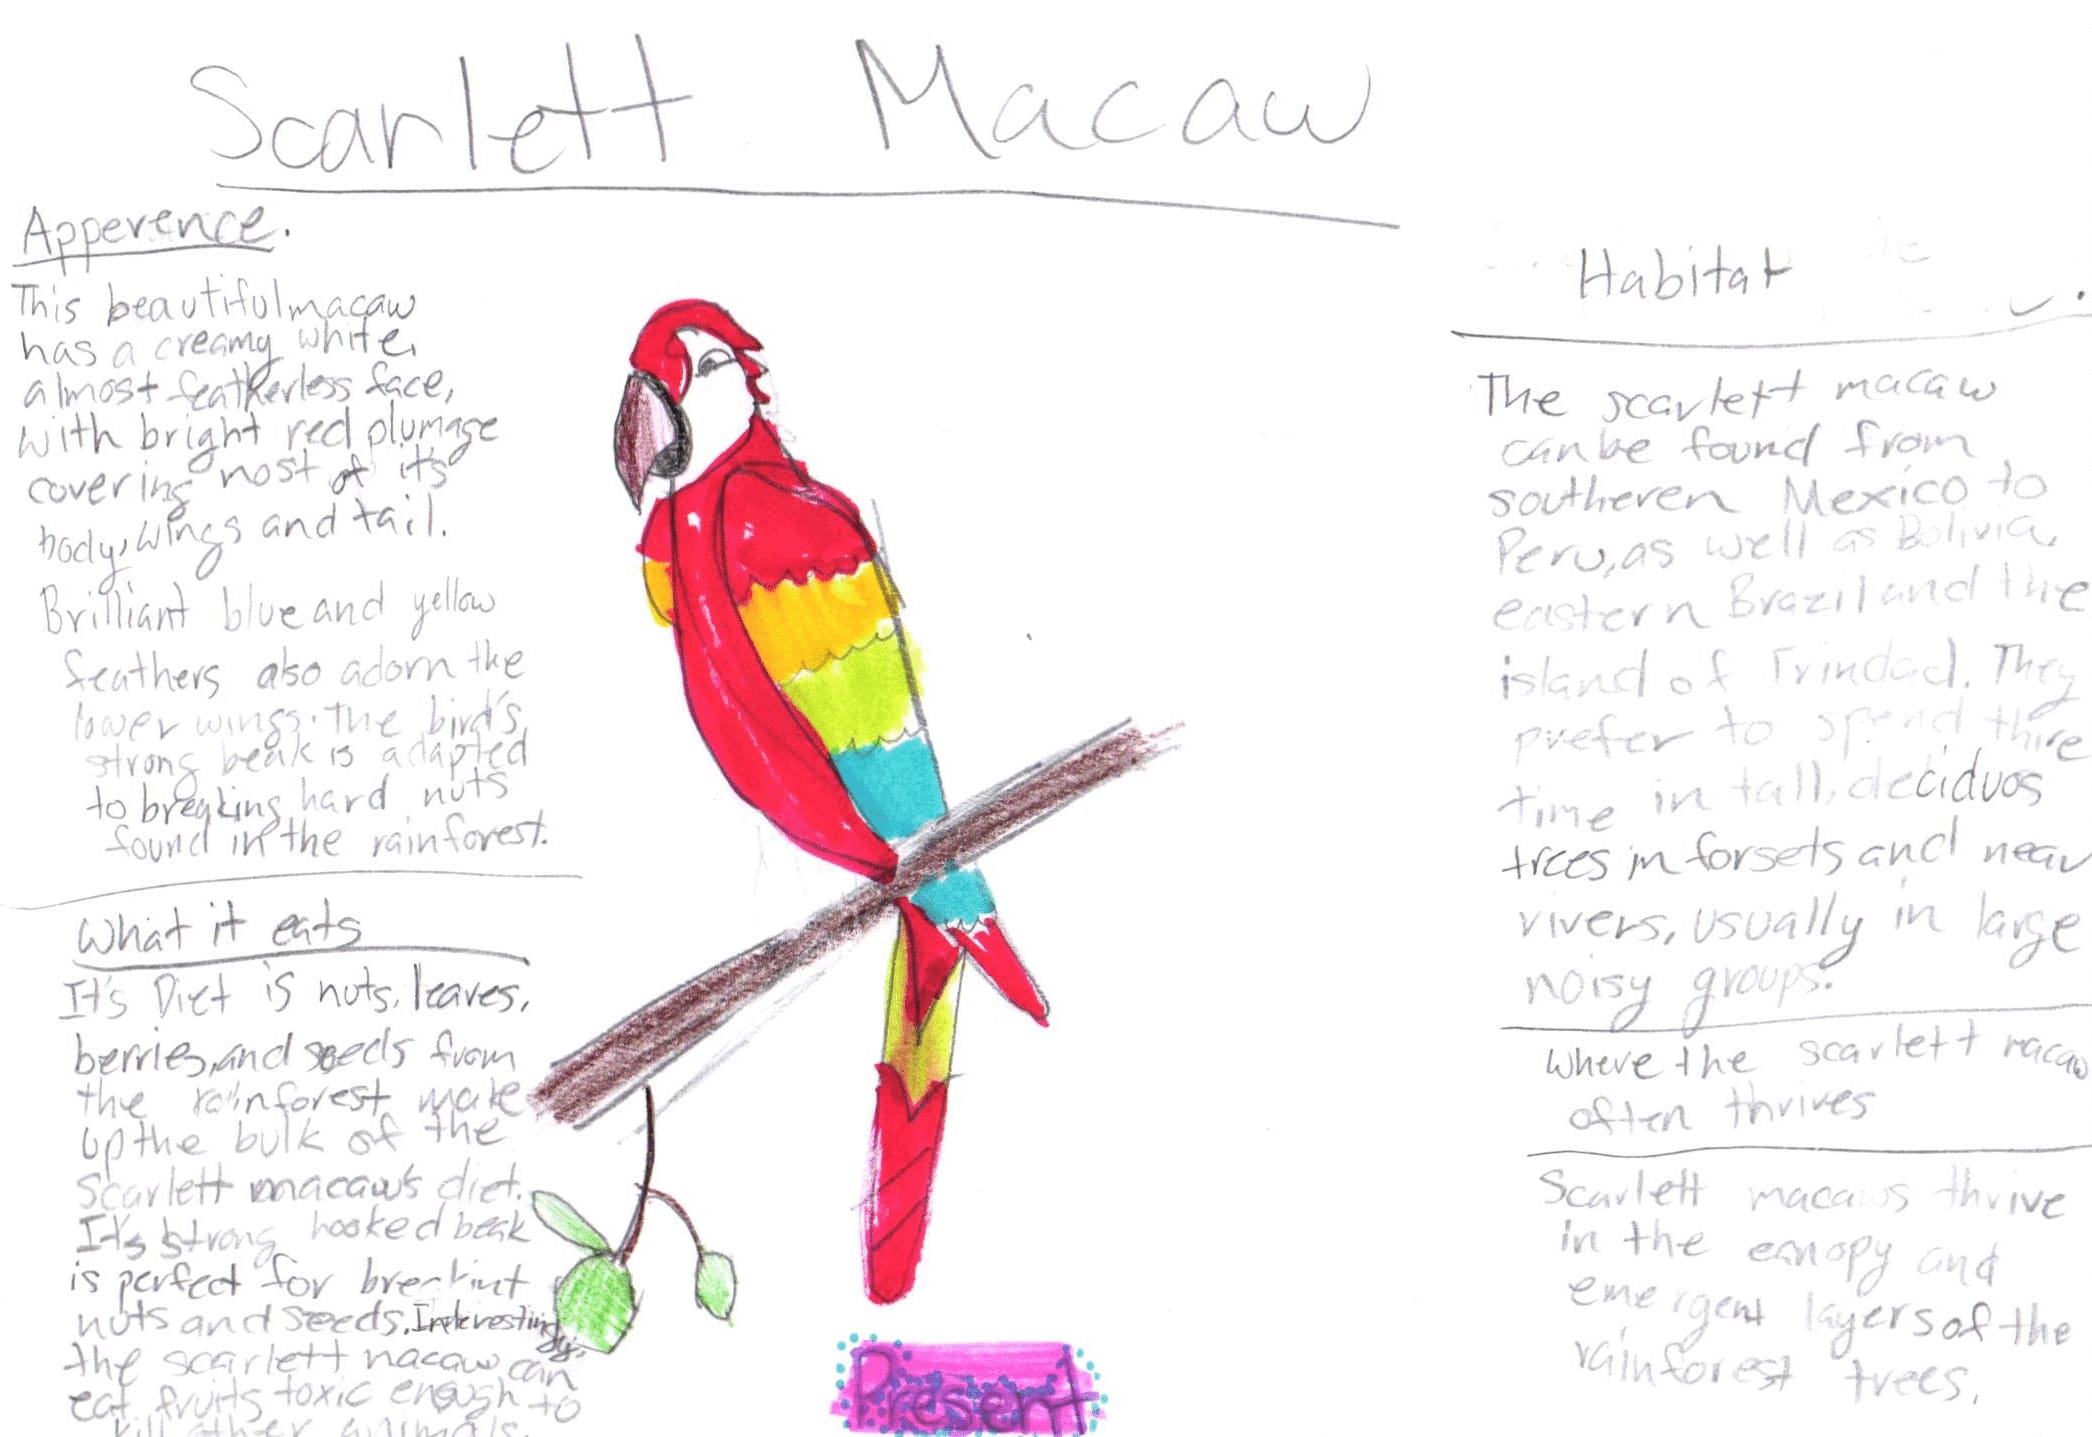 Scarlett Macaw
Apperence.
This beautiful macaw
has a creamy white,
almost featherless face,
with bright red plumage
covering most of it's
body, wings and tail.
Brilliant blue and yellow
feathers also adorn the
lower wings. The bird's
strong beak is adapted
to breaking hard nuts
found in the rainforest.
What it eats
It's Diet is nuts, leaves,
berries, and seeds from
the rainforest make
up the bulk of the
Scarlett macaw's diet.
It's strong hooked beak
is perfect for
nuts and seeds. Interestingly,
the scarlett macaw can
eat fruits toxic enough to
kill other animals.
Present
Habitat
The scarlett macaw
can be found from
southeren Mexico to
Peru, as well as Bolivia,
eastern Brazil and the
island of Trindad. They
prefer to spend thire
time in tall, deciduos
trees in forsets and near
rivers, usually in large
noisy groups.
Where the scarlett macaw
often thrives
Scarlett macaws thrive
in the canopy and
emergent layers of the
rainforest trees.